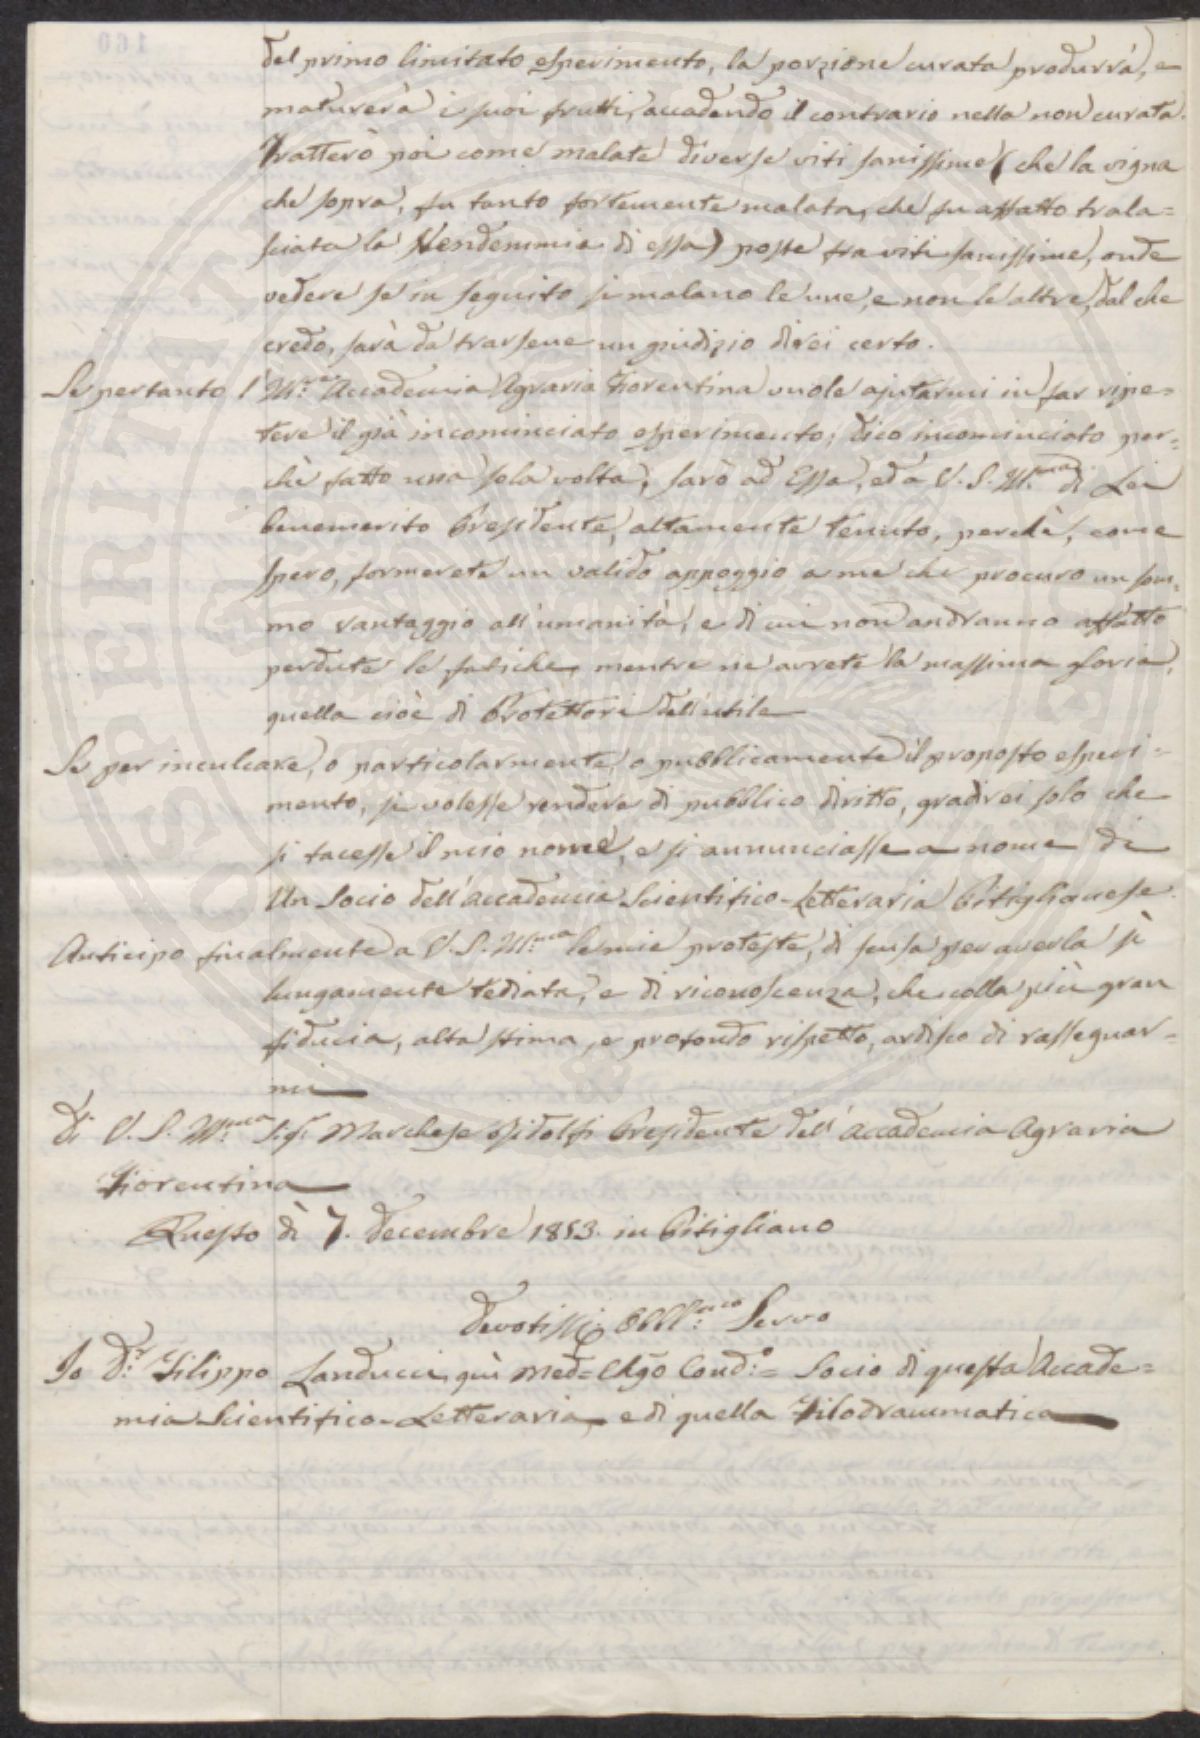 del primo limitato esperimento, la porzione curata produrrà, e
maturerà i suoi frutti, accadendo il contrario nella non curata.
Tratterò poi come malate diverse viti sanissime (che la vigna
che sopra, fu tanto fortemente malata, che fu affatto trala=
sciata la Vendemmia di essa) poste fra viti sanissime, onde
vedere se in seguito si malano le une, e non le altre, dal che
credo, sarà da trarsene un giudizio direi certo.
Se pertanto l'Ill.re Accademia Agraria Fiorentina vuole ajutarmi in far ripe=
tere il già incominciato esperimento; dico incominciato per=
chè fatto una sola volta, sarò ad Essa, ed a V. S. Ill.ma di Lei
benemerito Presidente, altamente tenuto, perchè, come
spero, formerete un valido appoggio a me che procuro un som=
mo vantaggio all'umanità, e di cui non andranno affatto
perdute le fatiche, mentre ne avrete la massima gloria,
quella cioè di Protettori dell'utile
Se per inculcare, o particolarmente, o pubblicamente il proposto esperi=
mento, si volesse rendere di pubblico diritto, gradirei solo che
si tacesse il mio nome, e si annunciasse a nome di
Un Socio dell'Accademia Scientifico-Letteraria Pitiglianese.
Anticipo finalmente a V. S. Ill.ma le mie proteste, di scusa per averla sì
lungamente tediata, e di riconoscenza, che colla più gran
fiducia, alta stima, e profondo rispetto, ardisco di rassegnar=
mi
Di V. S. Ill.ma Sig. Marchese Ridolfi Presidente dell'Accademia Agraria
Fiorentina
Questo dì 7. Decembre 1853. in Pitigliano
Devotiss. Obbl.mo Servo
Io D.r Filippo Landucci, quì Med= Chgo Cond.o = Socio di questa Accade=
mia Scientifico-Letteraria, e di quella Filodrammatica
OSPERITATI